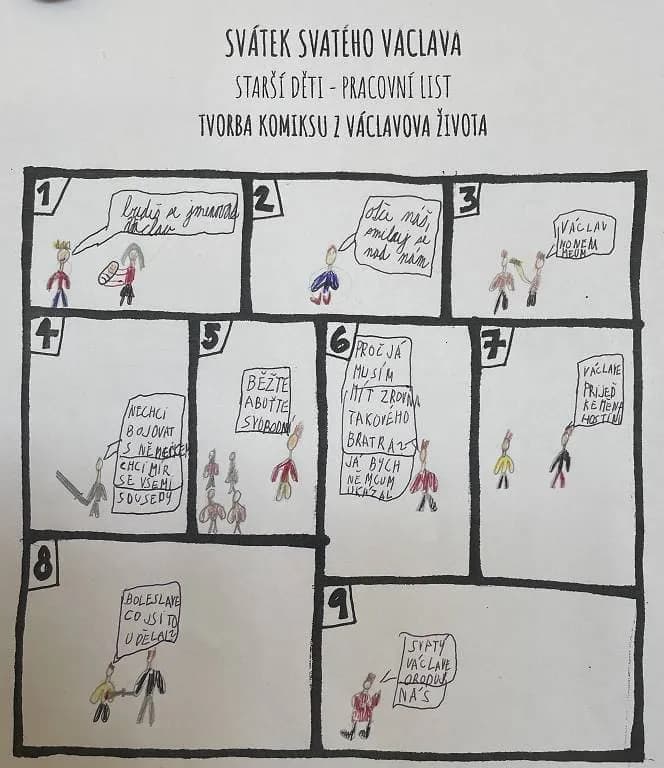 SVÁTEK SVATÉHO VÁCLAVA
STARŠÍ DĚTI - PRACOVNÍ LIST
TVORBA KOMIKSU Z VÁCLAVOVA ŽIVOTA
1
budeš se jmenovat
václav
2
Otče náš,
smiluj se
nad nám
3
VÁCLAV
4
NECHCI
BOJOVAT
S NĚMECKEM
CHCI MÍR
SE VŠEMI
SOUSEDY
5
BĚŽTE
ABUĎTE
SVOBODNÍ
6
PROČ JÁ
MUSÍM
MÍT ZROVNA
TAKOVÉHO
BRATRA?
JÁ BYCH
NĚMCUM
UKÁZAL
7
VÁCLAVE
PŘIJEĎ
KE MĚ NA
HOSTINU
8
BOLESLAVE
CO JSI TO
UDĚLAL?
9
SVATÝ
VÁCLAVE
ORODUJ
NÁS